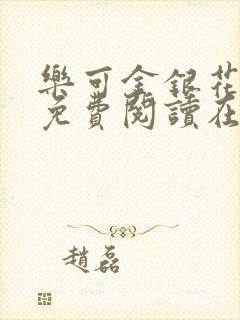 樂可金銀花
免費閱讀在
趙磊